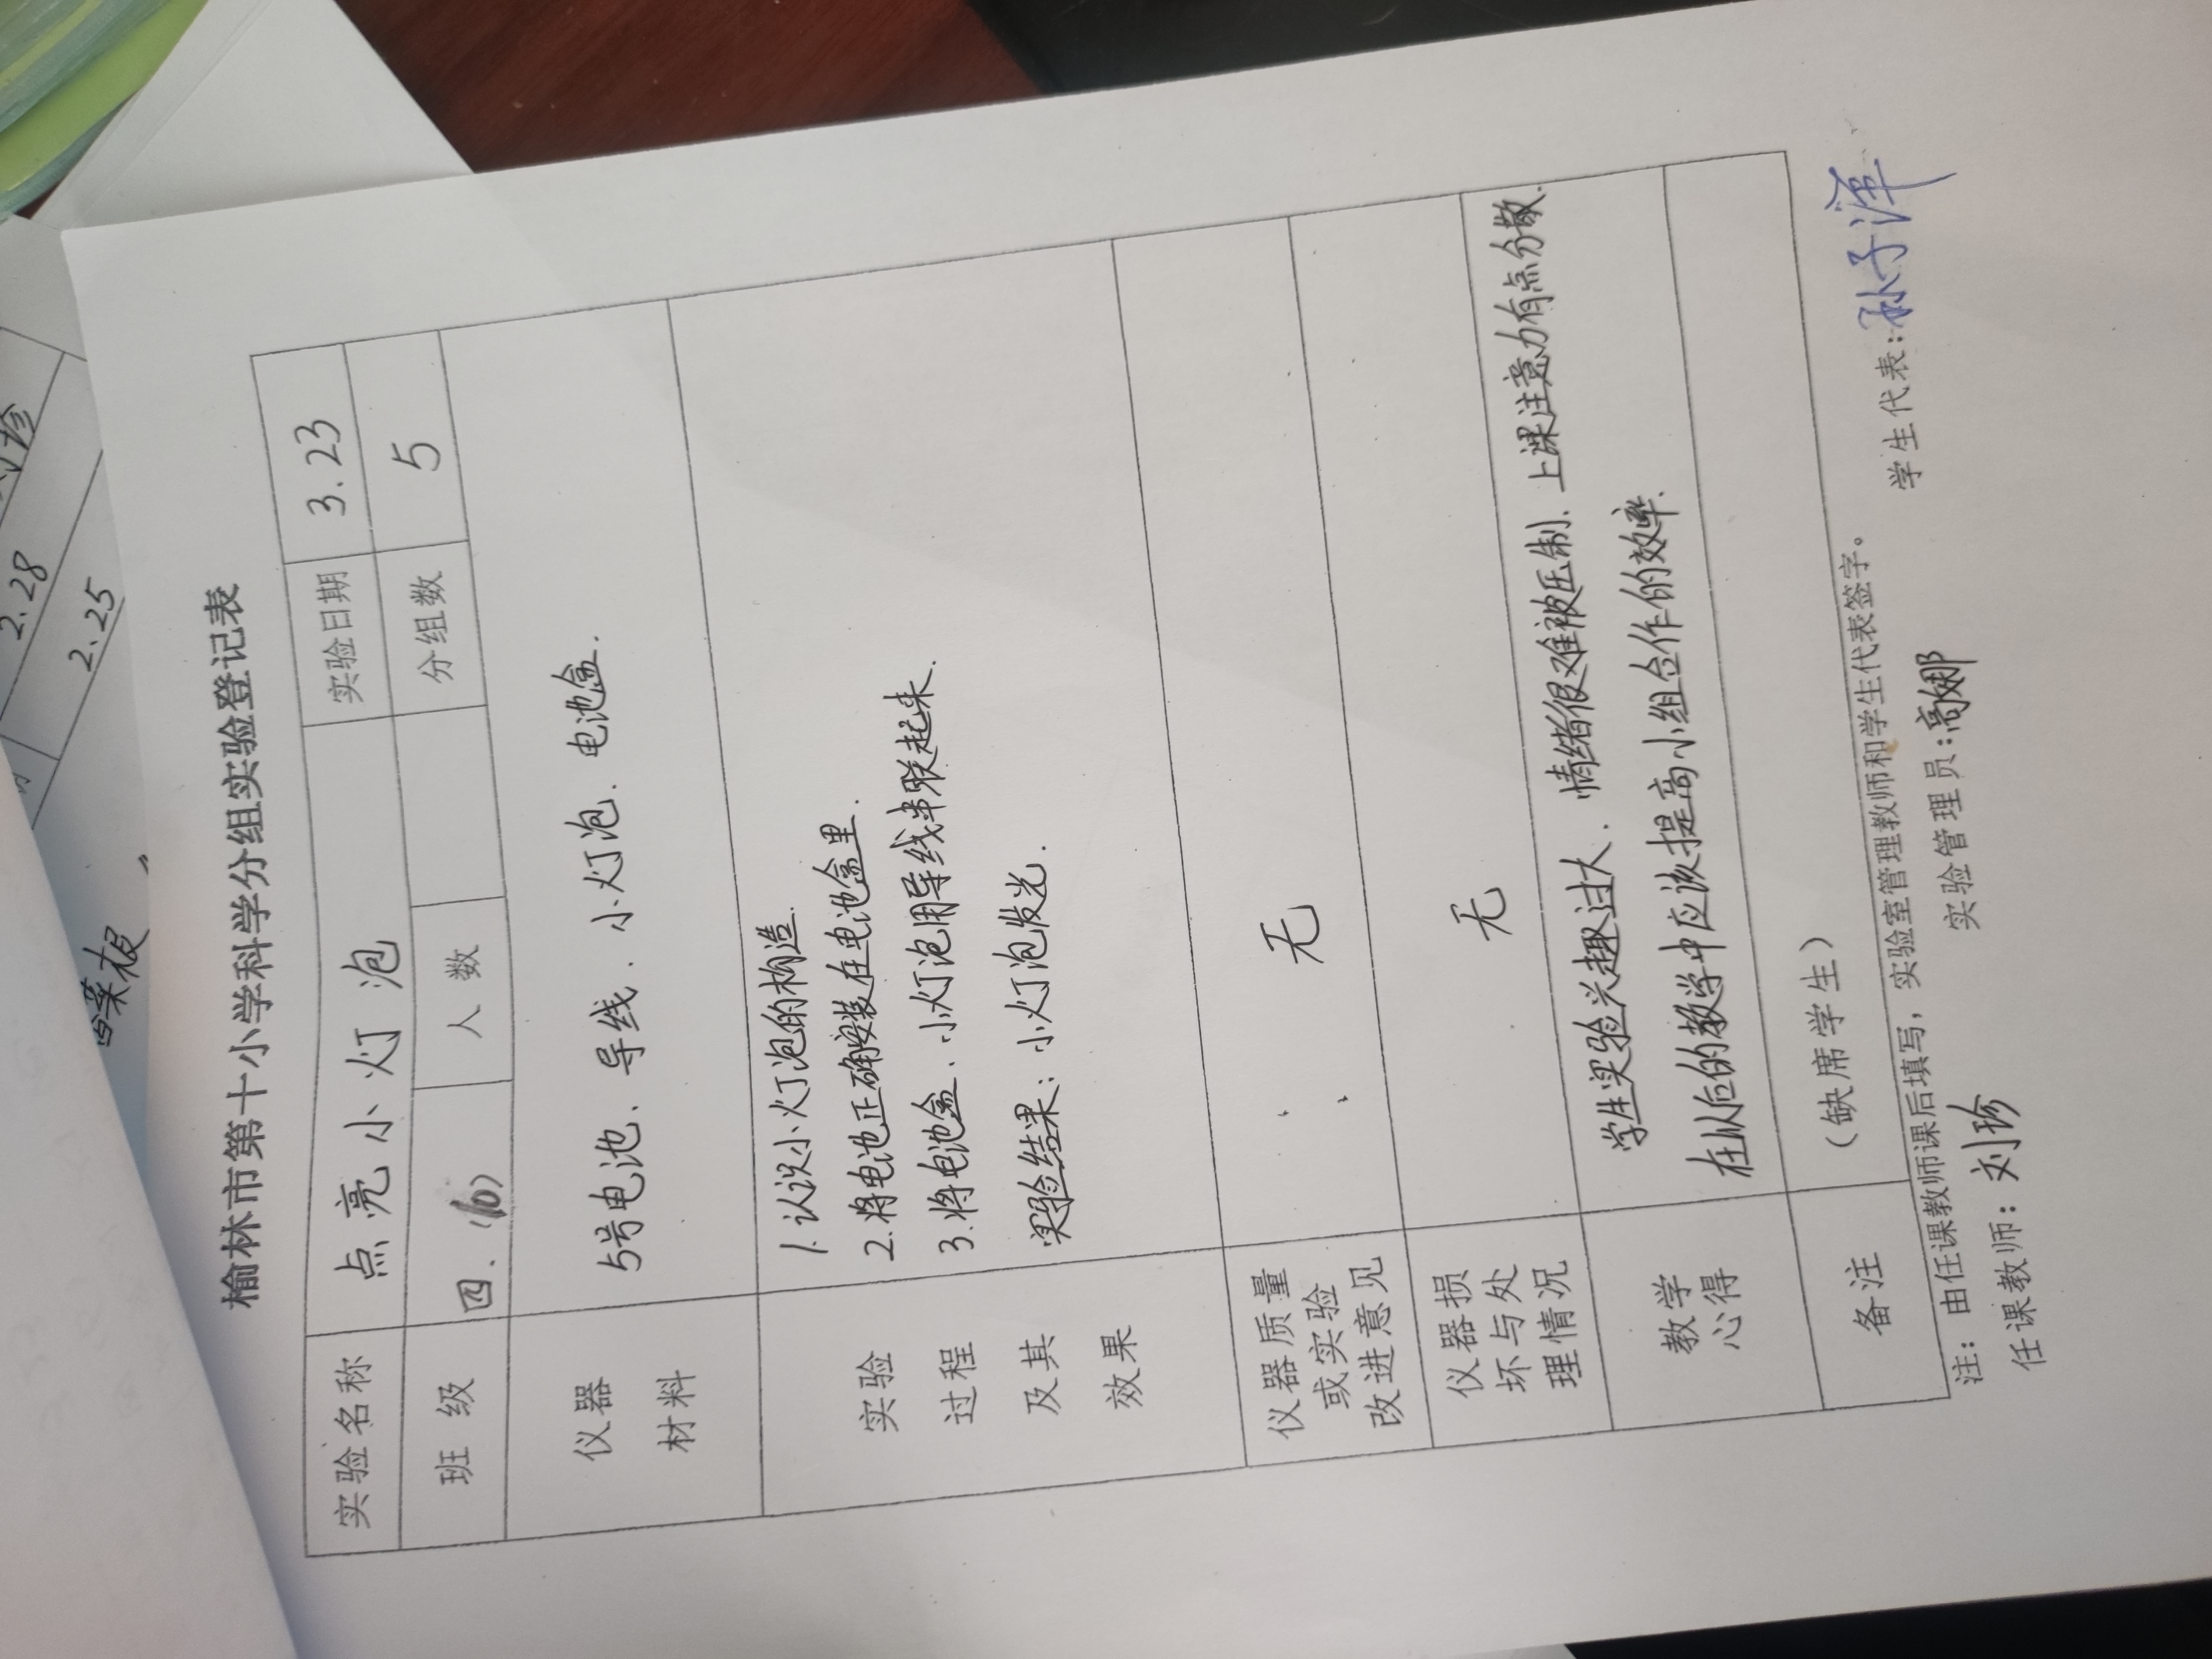 榆林市第十小学科学分组实验登记表
实验名称 点亮小灯泡 实验日期 3.23
班级 四.(10) 人数 分组数 5
仪器
材料
5号电池、导线、小灯泡、电池盒.
实验
过程
及其
效果
1.认识小灯泡的构造.
2.将电池正确安装在电池盒里.
3.将电池盒、小灯泡用导线串联起来.
实验结果:小灯泡发光.
仪器质量
或实验
改进意见
无
仪器损
坏与处
理情况
无
教学
心得
学生实验兴趣过大、情绪很难被压制、上课注意力有点分散.
在以后的教学中应该提高小组合作的效率.
备注 (缺席学生)
注:由任课教师课后填写,实验室管理教师和学生代表签字。
任课教师:刘珍 实验管理员:高娜 学生代表:孙子泽
2.28
2.25